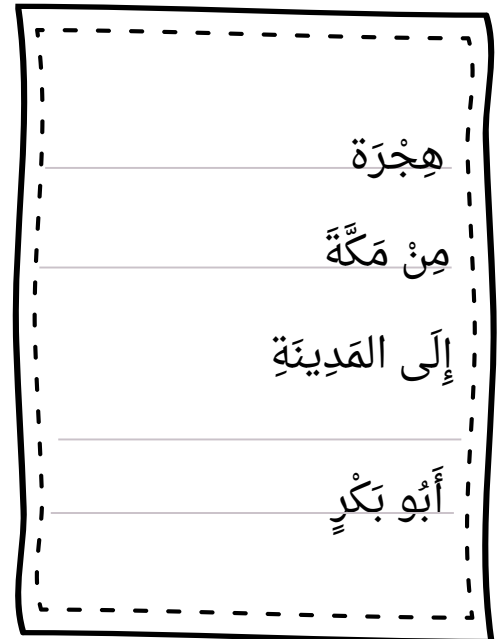 هِجْرَة
مِنْ مَكَّةَ
إِلَى المَدِينَةِ
أَبُو بَكْرٍ